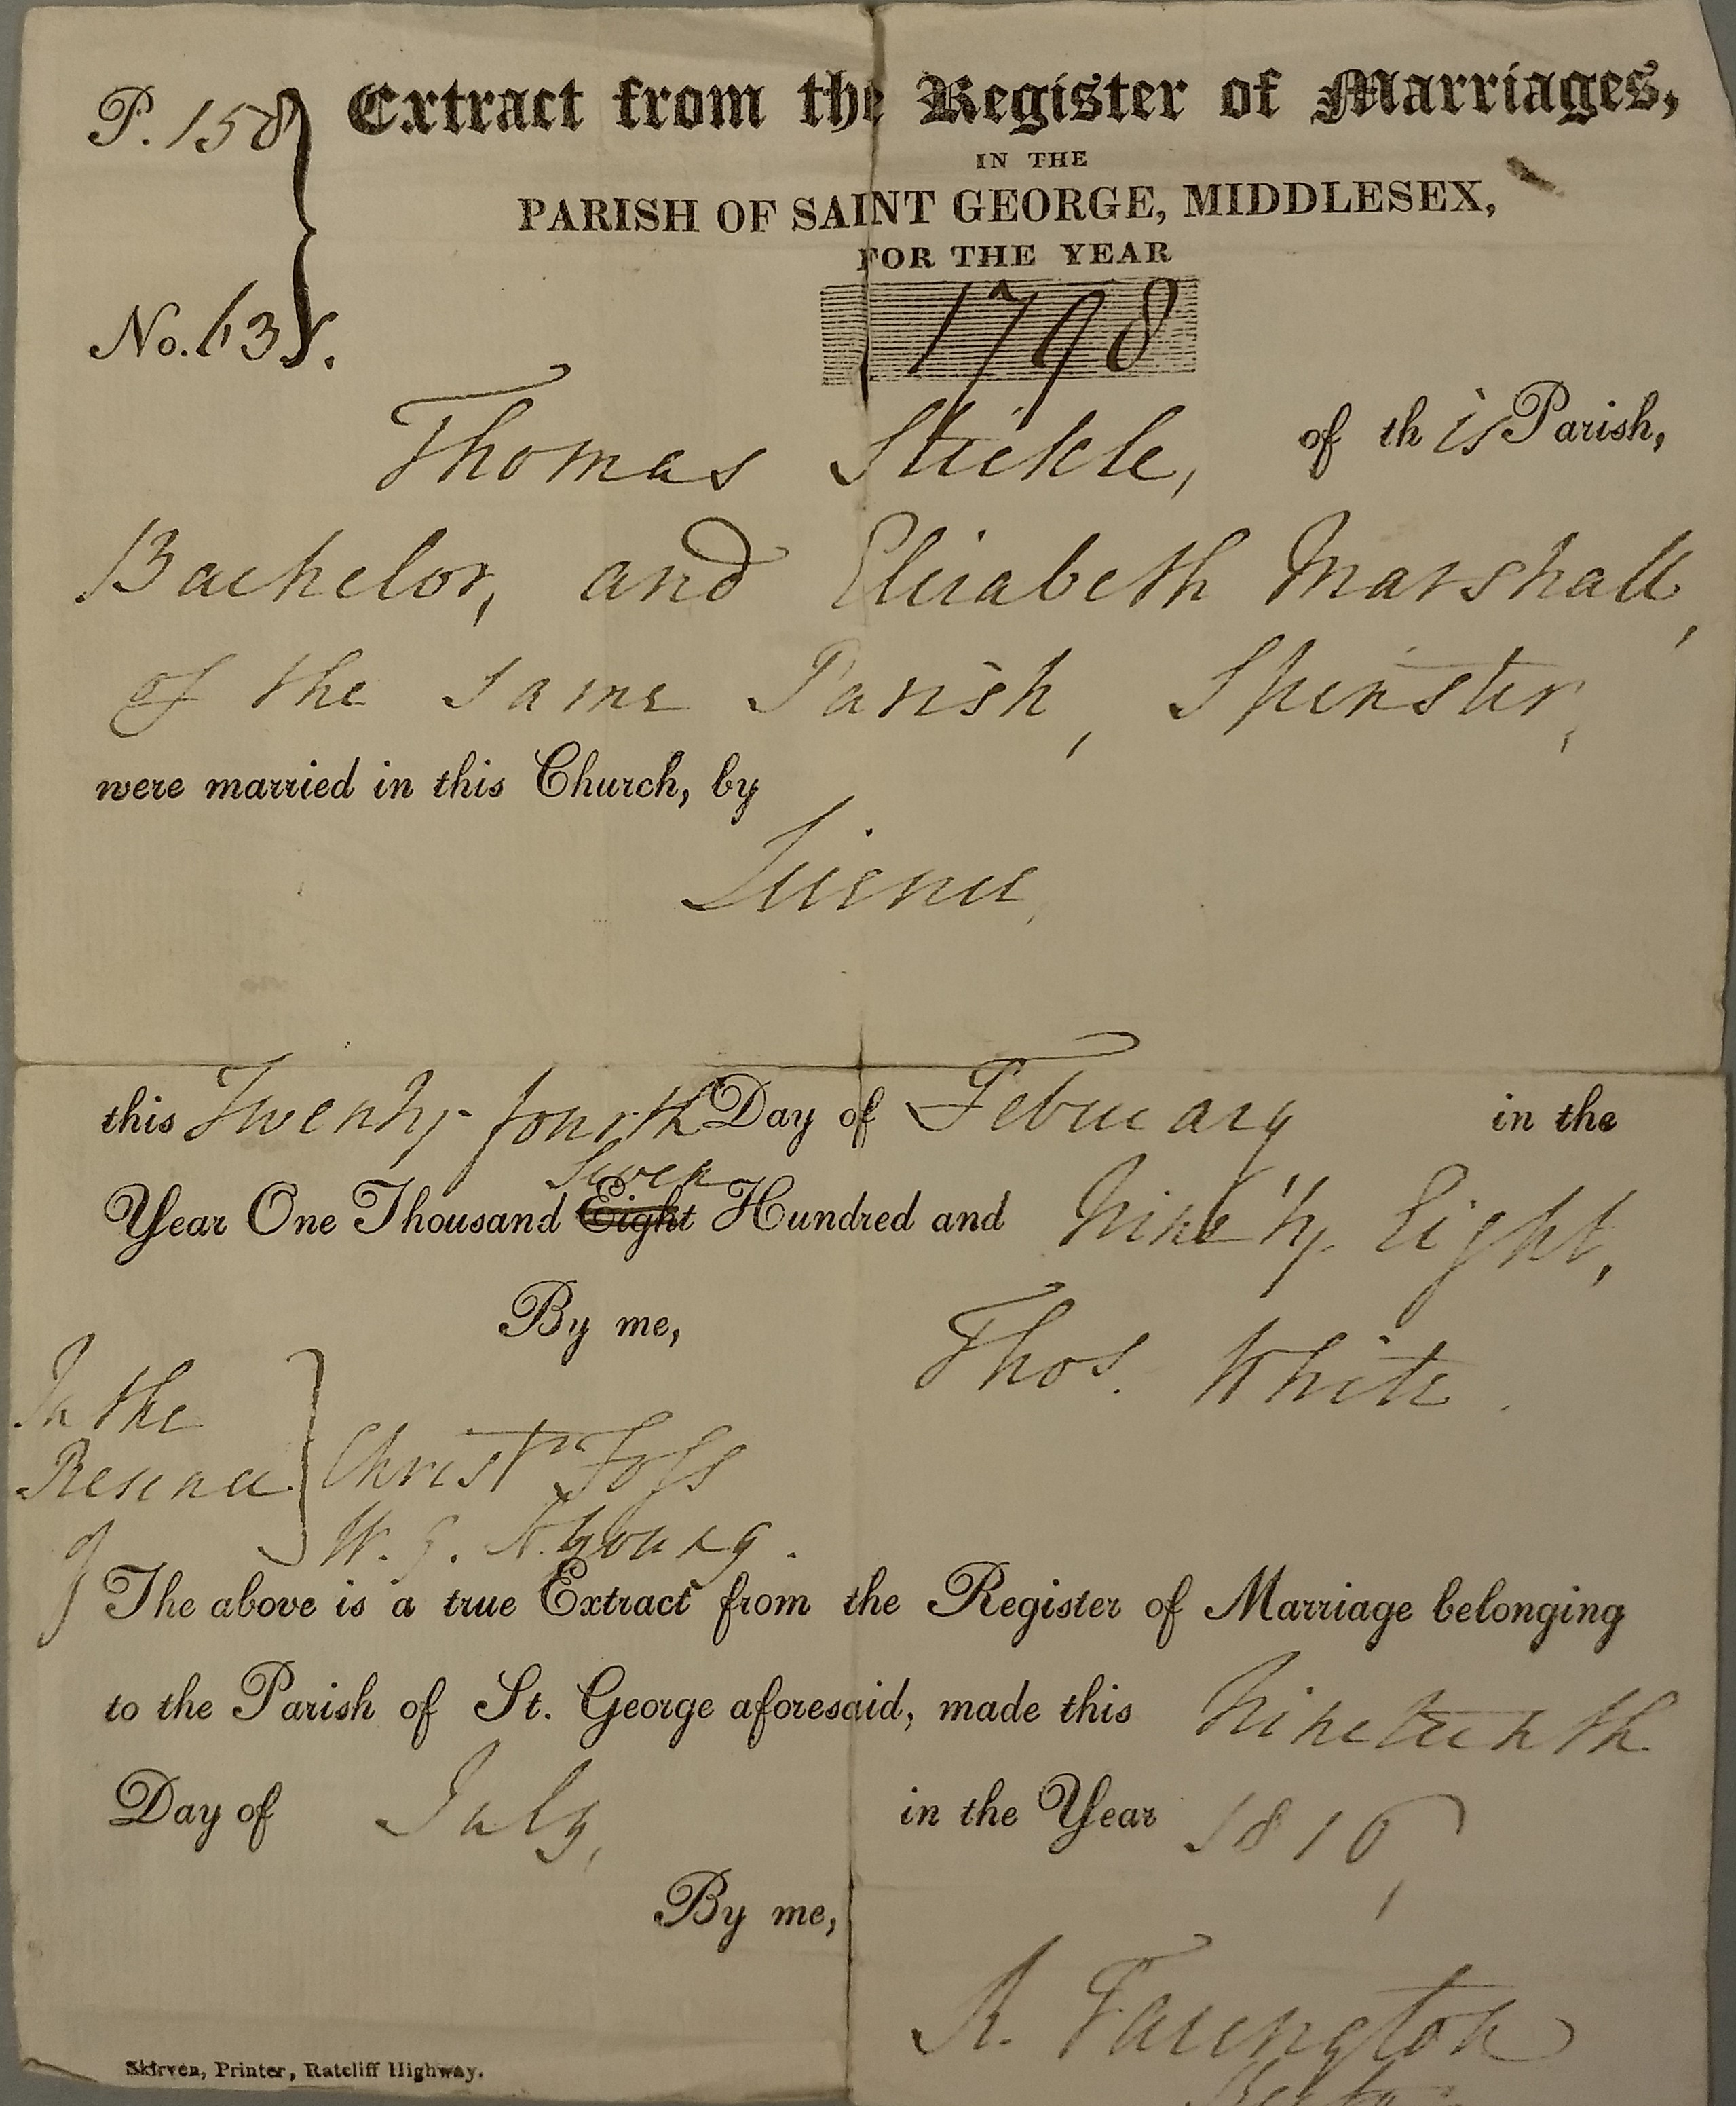 P. 158
Extract from the Register of Marriages,
IN THE
PARISH OF SAINT GEORGE, MIDDLESEX,
FOR THE YEAR
No.
1798
Thomas Stickle, of this Parish,
Bachelor, and Elizabeth Marshall,
of the same Parish, Spinster,
were married in this Church, by
Licence,
this Twenty fourth Day of February in the
Seven
Year One Thousand Eight Hundred and Ninety Eight,
By me,
Thos. White.
In the
Presence
of
Christr Foss
W. G.
The above is a true Extract from the Register of Marriage belonging
to the Parish of St. George aforesaid, made this Nineteenth
Day of July, in the Year 1816,
By me,
R. Farington
Rector
Skirven, Printer, Ratcliff Highway.